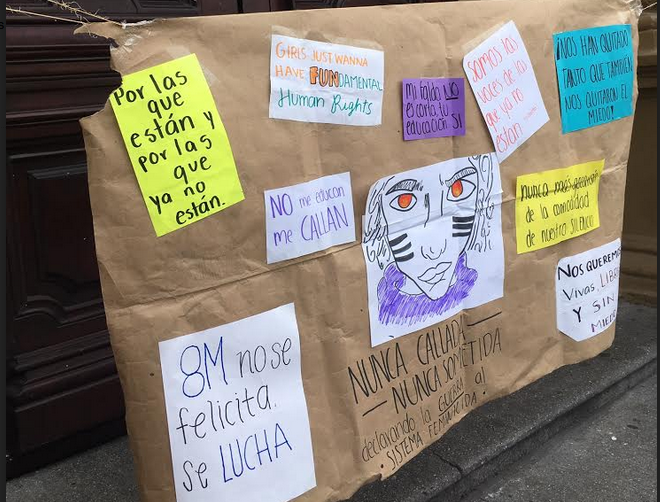 Por las
que
están y
por las
que
ya no
están.
GIRLS JUST WANNA
HAVE FUNDAMENTAL
Human Rights
Mi falda NO
es corta, tu
educación SÍ
Somos las
voces de las
que ya no
están
¡NOS HAN QUITADO
TANTO QUE TAMBIÉN
NOS QUITARON EL
MIEDO!
NO me educan
me CALLAN
nunca más
de la comodidad
de nuestro SILENCIO
NOS QUEREMOS
Vivas, LIBRES
Y SIN
MIEDO
8M no se
felicita.
se LUCHA
NUNCA CALLADA
— NUNCA SOMETIDA
declarando la GUERRA al
SISTEMA FEMINICIDA!